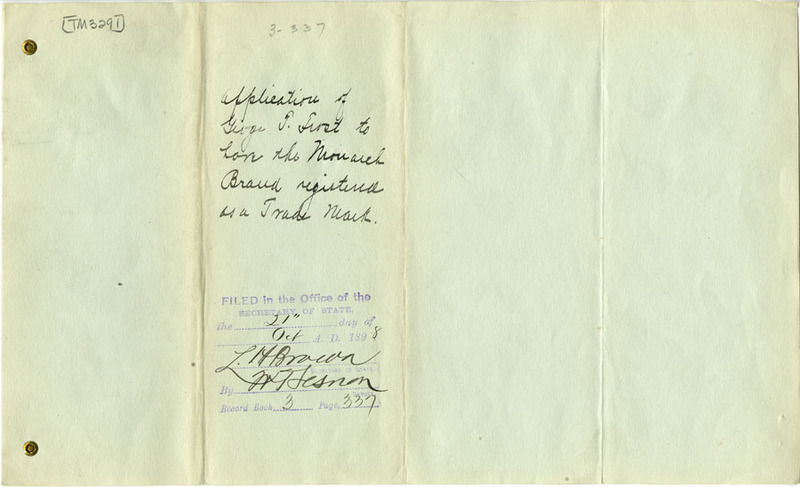 [TM3291]
3-337
application of
George P. Frost to
have the Monarch
Brand registered
as a Trade Mark.
FILED in the Office of the
SECRETARY OF STATE,
the 21" day of
Oct A. D. 1898
L. H. Brown
SECRETARY OF STATE
By
Deputy
Record Book, 3 Page, 337